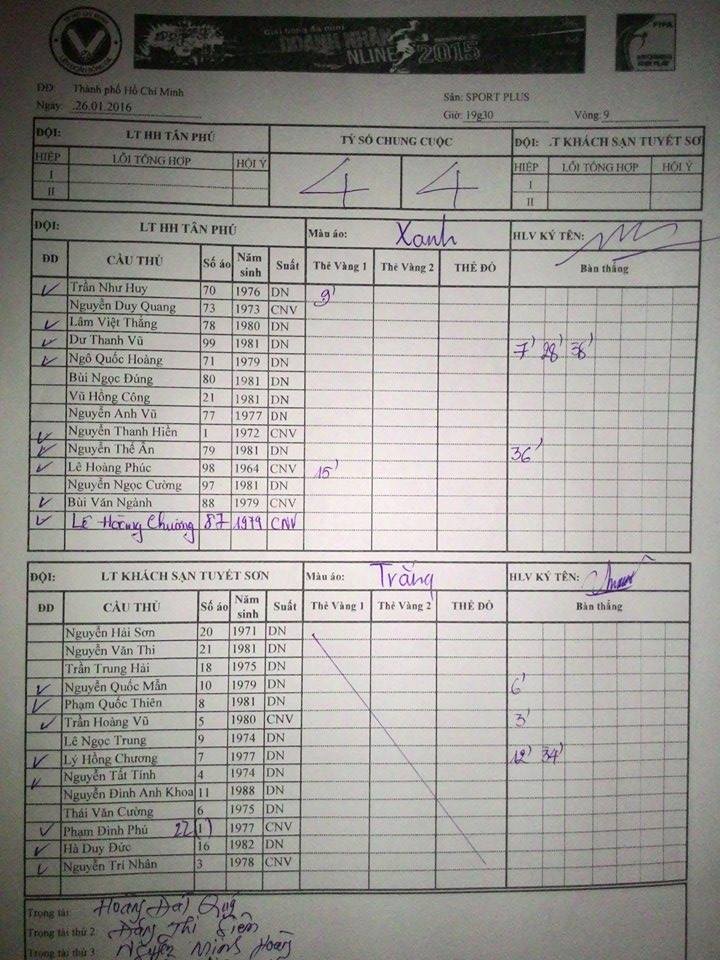 Giải bóng đá mini
DOANH NHÂN
NLINE 2015
FIFA
ĐĐ: Thành phố Hồ Chí Minh
Sân: SPORT PLUS
Ngày: .26.01.2016
Giờ: 19g30 Vòng: 9
ĐỘI: LT HH TÂN PHÚ TỶ SỐ CHUNG CUỘC ĐỘI: .T KHÁCH SẠN TUYẾT SƠ
HIỆP LỖI TỔNG HỢP HỘI Ý 4 4 HIỆP LỖI TỔNG HỢP HỘI Ý
I I
II II
ĐỘI: LT HH TÂN PHÚ Màu áo: Xanh HLV KÝ TÊN:
ĐD CẦU THỦ Số áo Năm sinh Suất Thẻ Vàng 1 Thẻ Vàng 2 THẺ ĐỎ Bàn thắng
Trần Như Huy 70 1976 DN 9'
Nguyễn Duy Quang 73 1973 CNV
Lâm Việt Thắng 78 1980 DN
Dư Thanh Vũ 99 1981 DN 7' 28' 38'
Ngô Quốc Hoàng 71 1979 DN
Bùi Ngọc Đúng 80 1981 DN
Vũ Hồng Công 21 1981 DN
Nguyễn Anh Vũ 77 1977 DN
Nguyễn Thanh Hiền 1 1972 CNV
Nguyễn Thế Ân 79 1981 DN 36'
Lê Hoàng Phúc 98 1964 CNV 15'
Nguyễn Ngọc Cường 97 1981 DN
Bùi Văn Ngành 88 1979 CNV
Lê Hoàng Chương 87 1979 CNV
ĐỘI: LT KHÁCH SẠN TUYẾT SƠN Màu áo: Trắng HLV KÝ TÊN:
ĐD CẦU THỦ Số áo Năm sinh Suất Thẻ Vàng 1 Thẻ Vàng 2 THẺ ĐỎ Bàn thắng
Nguyễn Hải Sơn 20 1971 DN
Nguyễn Văn Thi 21 1981 DN
Trần Trung Hải 18 1975 DN
Nguyễn Quốc Mẫn 10 1979 DN 6'
Phạm Quốc Thiên 8 1981 DN
Trần Hoàng Vũ 5 1980 CNV 3'
Lê Ngọc Trung 9 1974 DN
Lý Hồng Chương 7 1977 DN 12' 34'
Nguyễn Tất Tính 4 1974 DN
Nguyễn Đình Anh Khoa 11 1988 DN
Thái Văn Cường 6 1975 DN
Phạm Đình Phú 22 (1) 1977 CNV
Hà Duy Đức 16 1982 DN
Nguyễn Trí Nhân 3 1978 CNV
Trọng tài: Hoàng Quý
Trọng tài thứ 2: Đặng Thị
Trọng tài thứ 3: Nguyễn Minh Hoàng